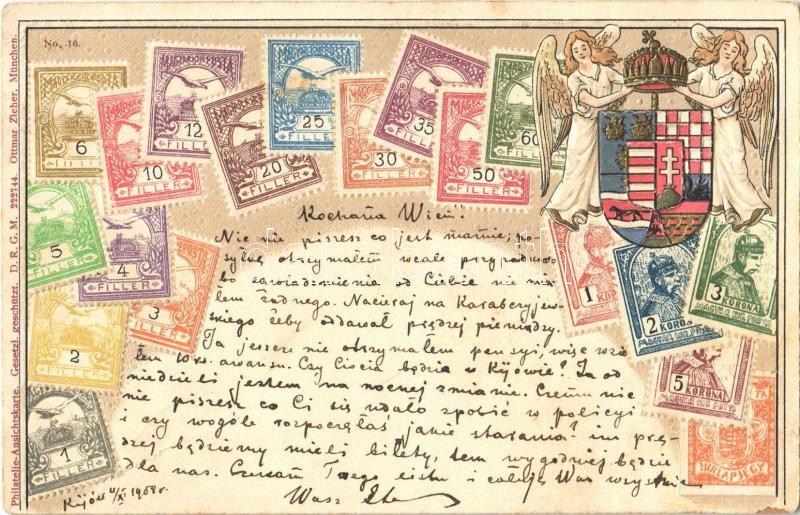 No. 16.
Philatelie-Ansichtskarte. Gesetzl. geschützt. D. R. G. M. 222744. Ottmar Zieher, München.
MAGYAR KIR. POSTA
6 FILLER
10 FILLER
12 FILLER
20 FILLER
25 FILLER
30 FILLER
35 FILLER
50 FILLER
60 FILLER
5
4 FILLER
3 FILLER
2 FILLER
1 FILLER
1 KOR
2 KORONA
3 KORONA
5 KORONA
HIRLAPJEGY
Kochana Wien!
Nie nie piszesz co jest mamie; po-
syłkę otrzymałem wcale przypadkowo
bo zawiadomienia od Ciebie nie mia-
łem żadnego. Nacieraj na
żeby oddawał prędzej pieniądze.
Ja jeszcze nie otrzymałem pensyi, więc wzią-
łem 10 rs. awansu. Czy Ciocia będzie w Kijowie? Ja od
niedzieli jestem na nocnej zmianie. Czemu nie
nie piszesz co Ci się udało zrobić w policyi
i czy wogóle rozpoczęłaś jakie starania? im prę-
dzej będziemy mieli bilety, tem wygodniej będzie
dla nas. Czekam Twego listu i całuję Was
Wasz
Kijów 4/XI 1908 r.